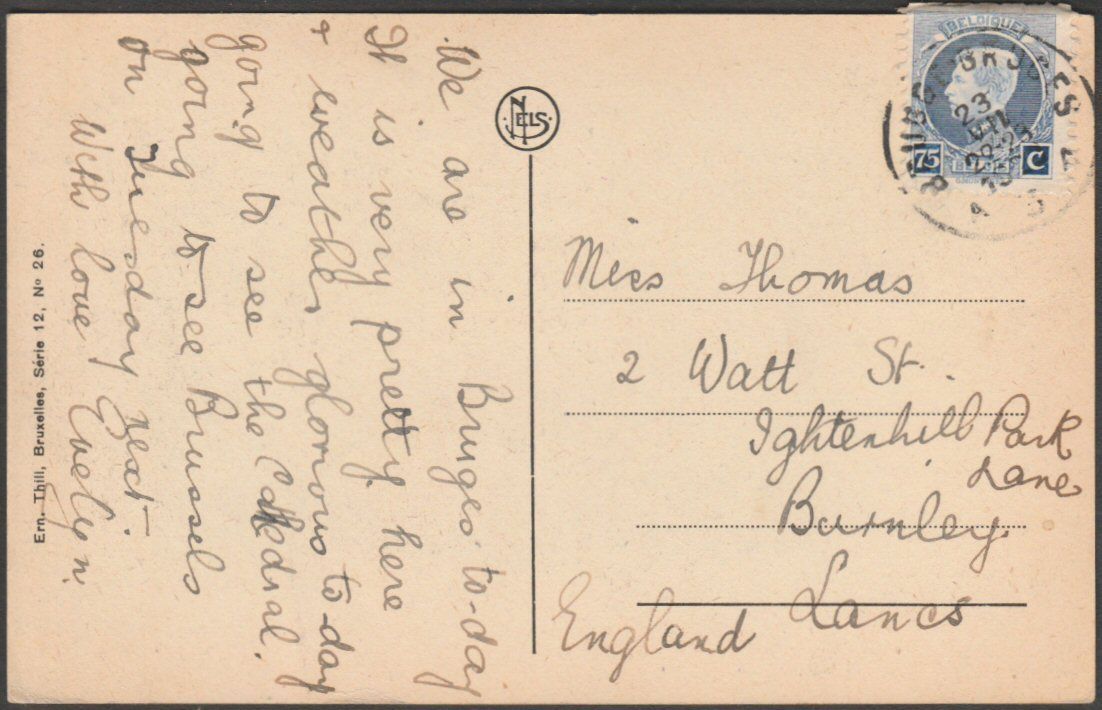 We are in Bruges to-day
It is very pretty here
& weather glorious to-day
going to see the Cathedral.
going to see Brussels
on Tuesday next.
With love Evelyn.
Ern. Thill, Bruxelles, Série 12, No 26.
NELS
BELGIQUE
75 C
BELGIE
BRUGGE BRUGES
23
VII
Miss Thomas
2 Watt St.
Ightenhill Park
Lane
Burnley
Lancs
England